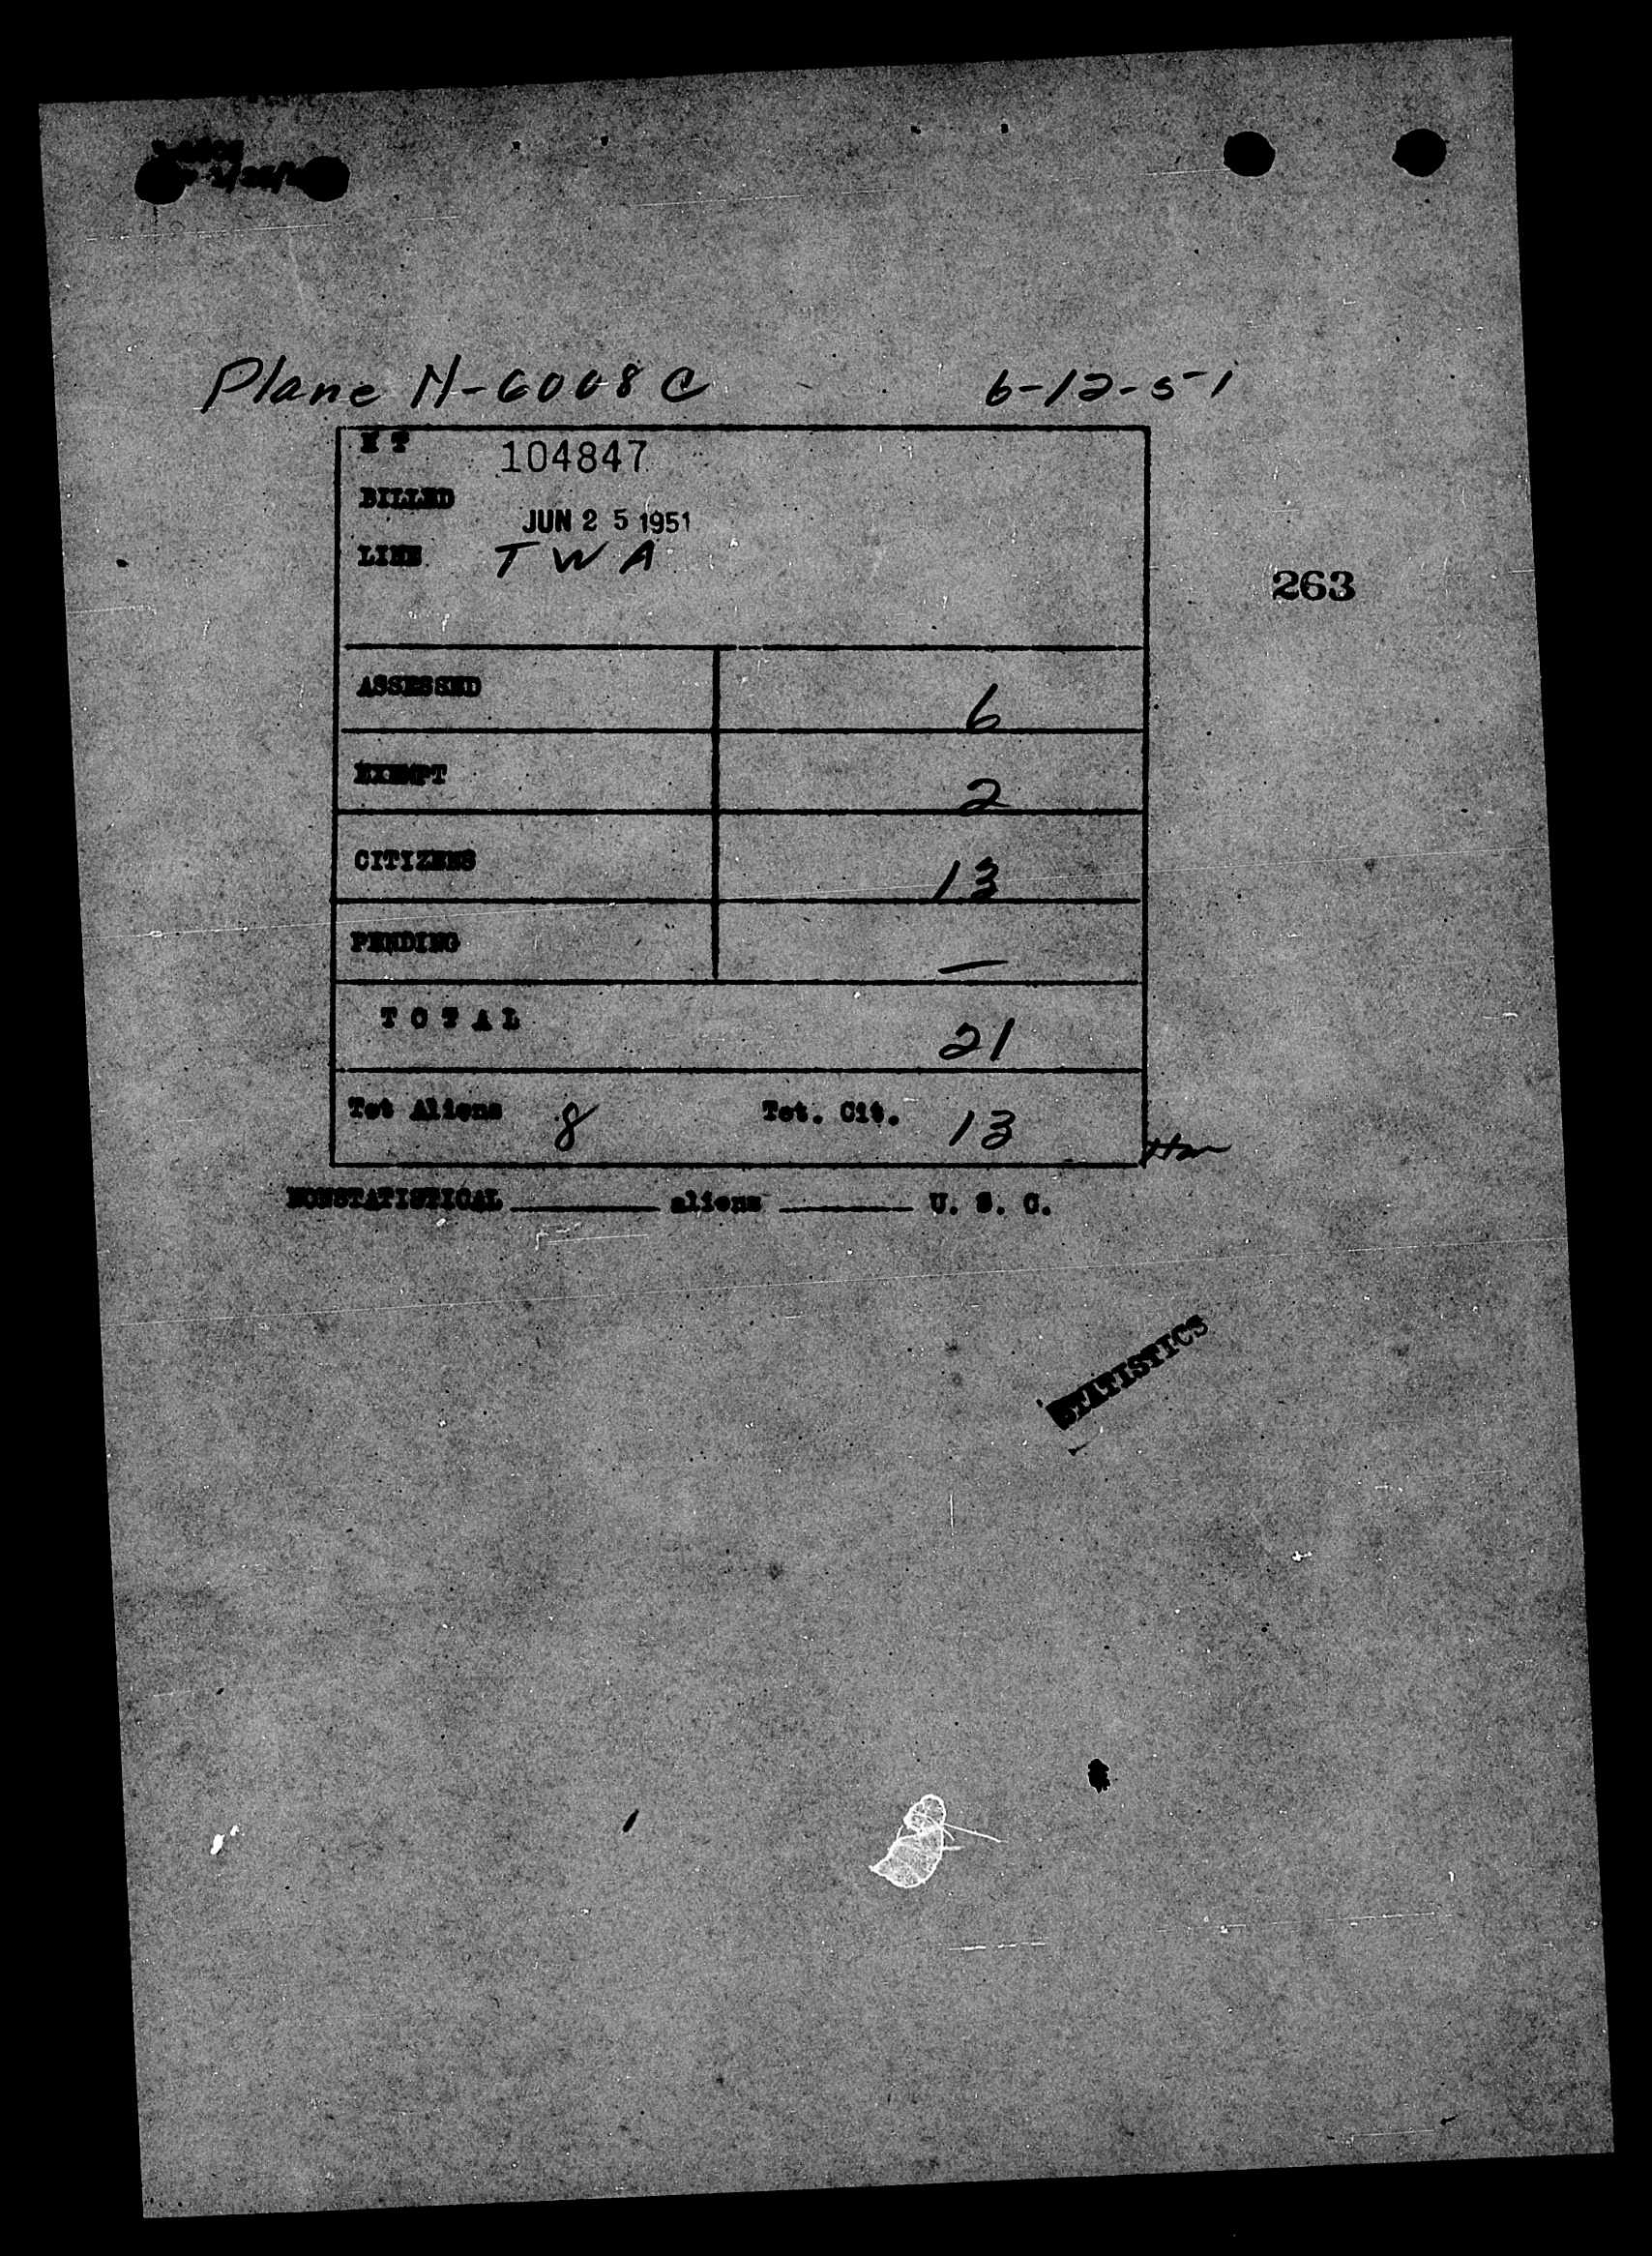 Plane N-6008 C 6-12-51
104847
BILLED
JUN 25 1951
LINE TWA
263
ASSESSED 6
EXEMPT 2
CITIZENS 13
PENDING —
TOTAL 21
Tot Aliens 8 Tot. Cit. 13
NONSTATISTICAL ______ aliens ______ U. S. C.
STATISTICS